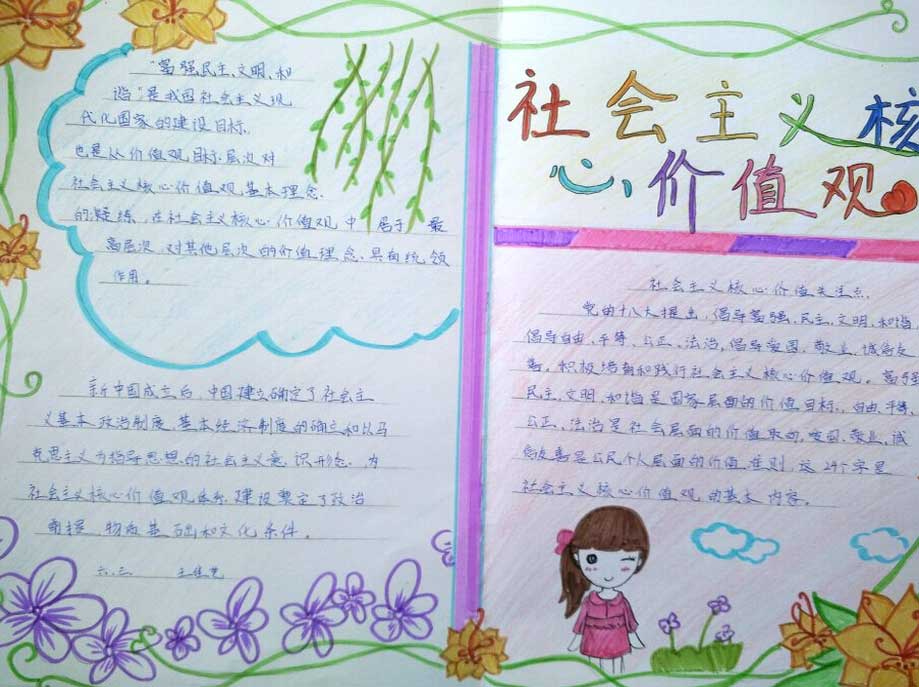 "富强民主、文明、和
谐"是我国社会主义现
代化国家的建设目标、
也是从价值观目标层次对
社会主义核心价值观基本理念、
的凝练、在社会主义核心价值观中居于最
高层次、对其他层次的价值理念、具有统领
作用。
新中国成立后、中国建立确定了社会主
义基本政治制度、基本经济制度的确立和以马
克思主义为指导思想的社会主义意识形态、为
社会主义核心价值观体系建设奠定了政治
前提、物质基础和文化条件。
六、三
社会主义核
心价值观
社会主义核心价值关注点
党的十八大提出、倡导富强、民主、文明、和谐
倡导自由、平等、公正、法治、倡导爱国、敬业、诚信友
善、积极培育和践行社会主义核心价值观。富强
民主、文明、和谐是国家层面的价值目标、自由、平等、
公正、法治是社会层面的价值取向、爱国、敬业、诚
信友善是公民个人层面的价值准则、这24个字是
社会主义核心价值观的基本内容。